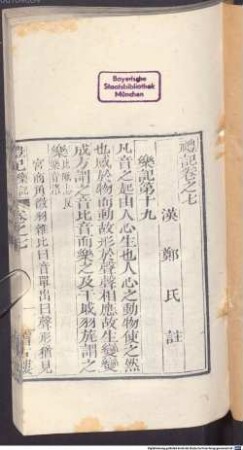 Bayerische
Staatsbibliothek
München
禮記卷之七
漢鄭氏註
樂記第十九
凡音之起由人心生也人心之動物使之然
也感於物而動故形於聲聲相應故生變變
成方謂之音比音而樂之及干戚羽旄謂之
樂
宮商角徵羽雜比曰音單出曰聲形猶見